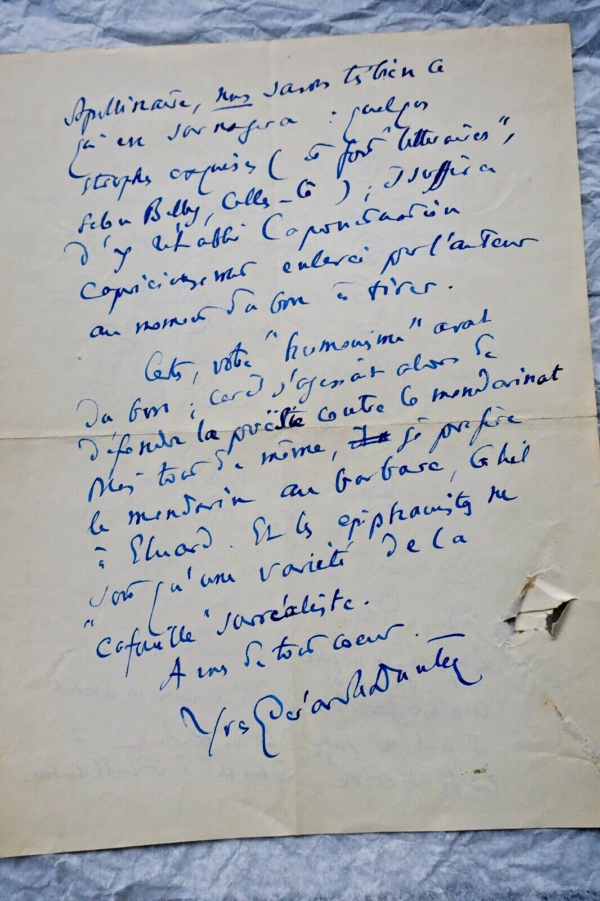 Apollinaire, nous savons très bien ce
qui en surnagera : quelques
strophes exquises ( et fort "littéraires",
selon Billy, celles-là ) ; il suffira
d'y rétablir la ponctuation
capricieusement enlevée par l'auteur
au moment du bon à tirer.
Certes, votre "humanisme" avait
du bon ; car il s'agissait alors de
défendre la poésie contre le mandarinat
Mais tout de même, je préfère
le mandarin au barbare, Ghil
à Eluard. Et les épiphanistes ne
sont qu'une variété de la
"cafouille" surréaliste.
A vous de tout coeur.
Yves Gérard le Dantec